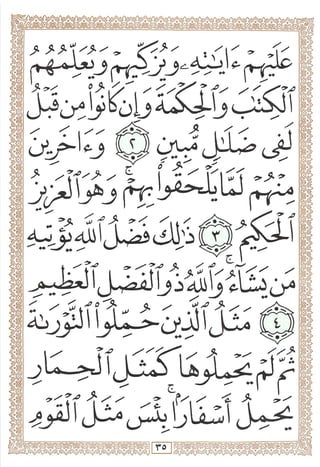 عَلَيْهِمْ ءَايَٰتِهِۦ وَيُزَكِّيهِمْ وَيُعَلِّمُهُمُ
ٱلْكِتَٰبَ وَٱلْحِكْمَةَ وَإِن كَانُوا۟ مِن قَبْلُ
لَفِى ضَلَٰلٍ مُّبِينٍ ٢ وَءَاخَرِينَ
مِنْهُمْ لَمَّا يَلْحَقُوا۟ بِهِمْ ۚ وَهُوَ ٱلْعَزِيزُ
ٱلْحَكِيمُ ٣ ذَٰلِكَ فَضْلُ ٱللَّهِ يُؤْتِيهِ
مَن يَشَآءُ ۚ وَٱللَّهُ ذُو ٱلْفَضْلِ ٱلْعَظِيمِ
٤ مَثَلُ ٱلَّذِينَ حُمِّلُوا۟ ٱلتَّوْرَىٰةَ
ثُمَّ لَمْ يَحْمِلُوهَا كَمَثَلِ ٱلْحِمَارِ
يَحْمِلُ أَسْفَارًۢا ۚ بِئْسَ مَثَلُ ٱلْقَوْمِ
٣٥